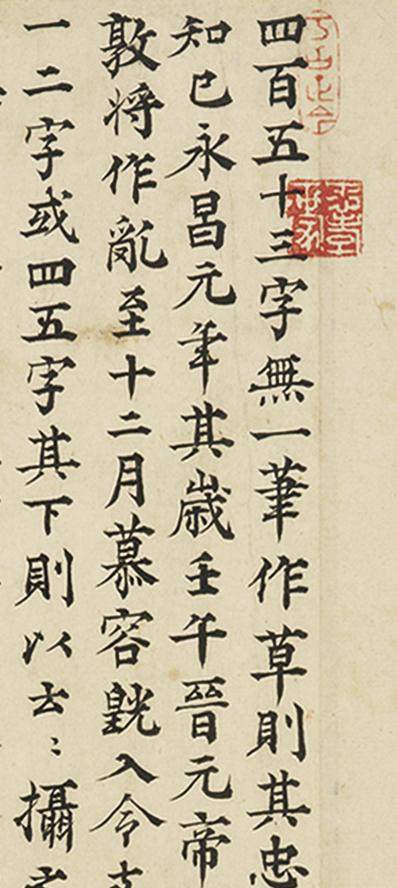 四百五十三字無一筆作草則其忠
知已永昌元年其歲壬午晉元帝
敦将作亂至十二月慕容皝入令
一二字或四五字其下則以云〻攝